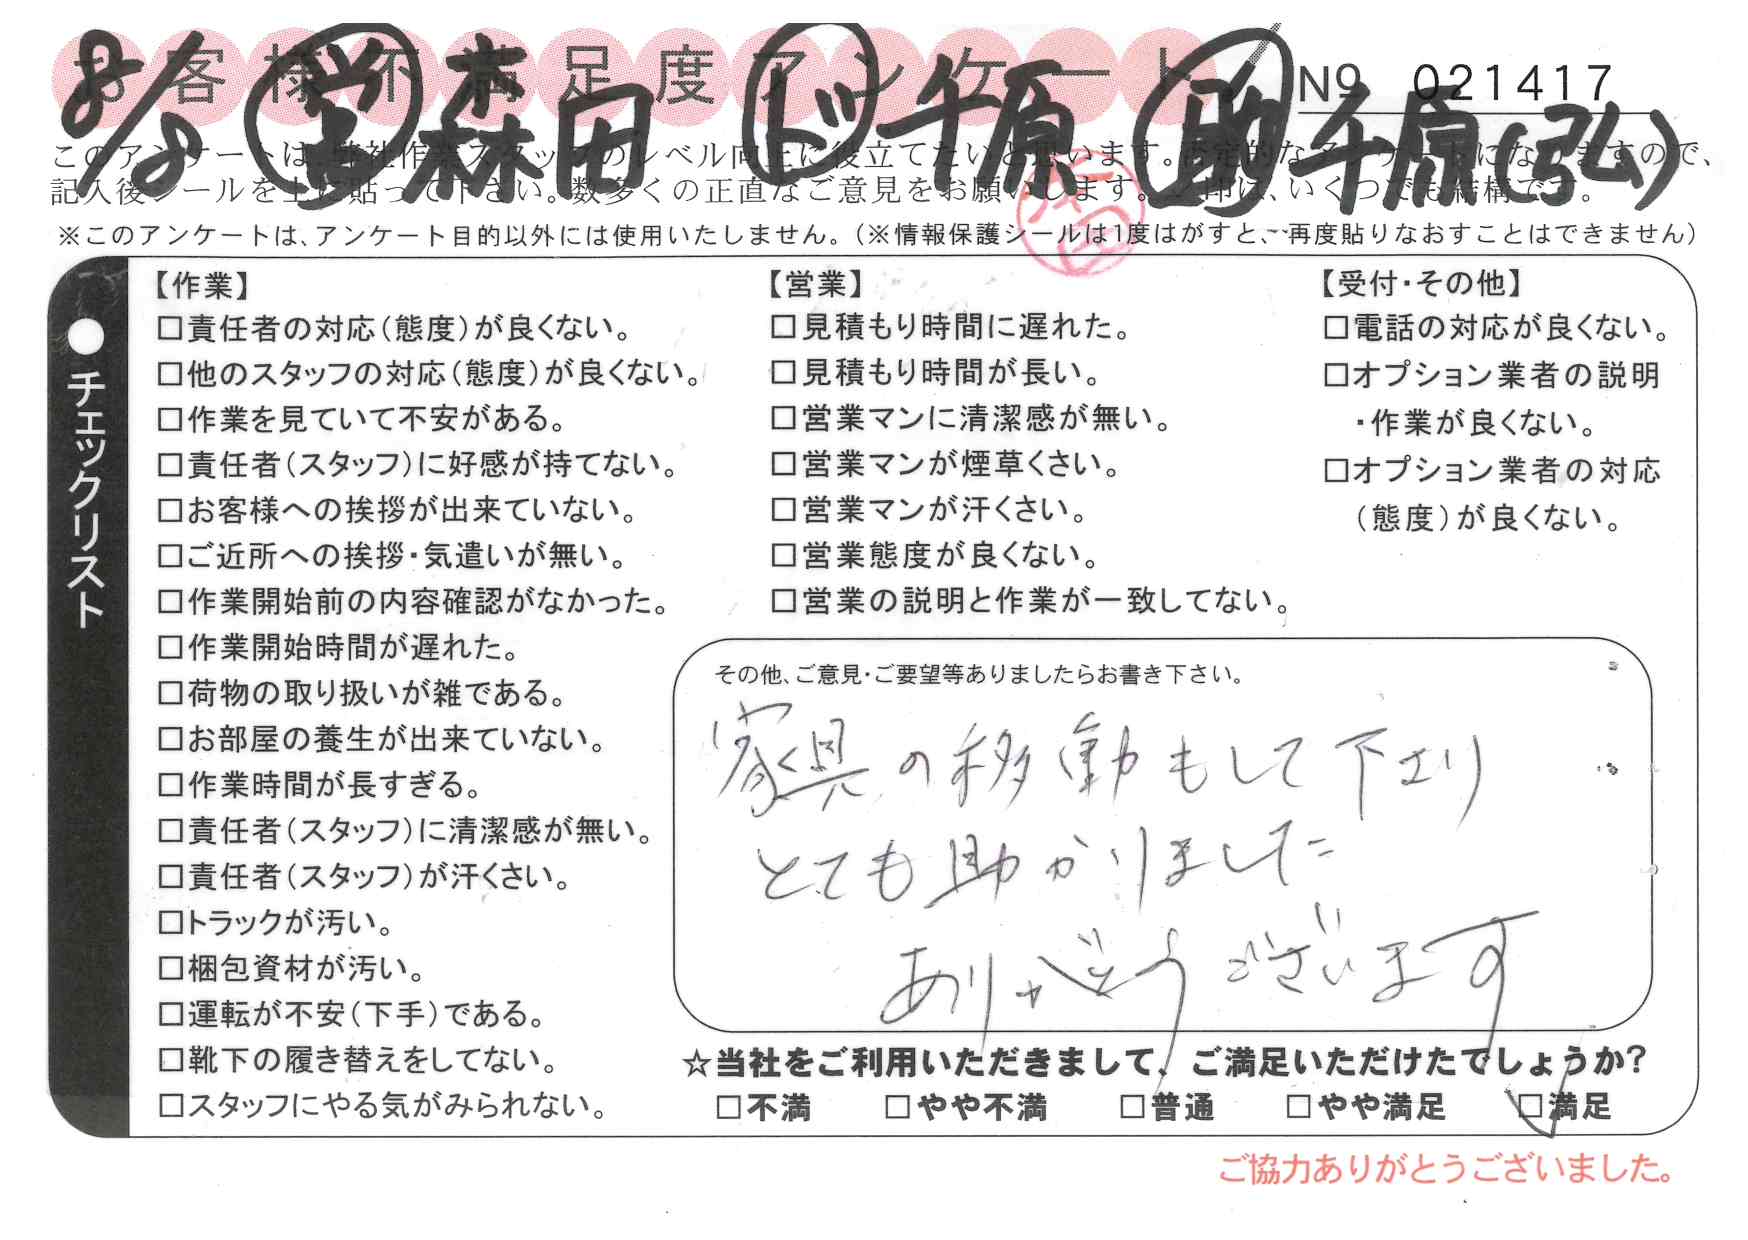 お客様不満足度アンケート
№ 021417
8/2 営 森田 ド 千原 助 千原(弘)
このアンケートは、弊社作業スタッフのレベル向上に役立てたいと思います。否定的なアンケートになりますので、
記入後シールを上に貼って下さい。数多くの正直なご意見をお願いします。✓印は、いくつでも結構です。
※このアンケートは、アンケート目的以外には使用いたしません。(※情報保護シールは1度はがすと、再度貼りなおすことはできません)
●チェックリスト
【作業】
□責任者の対応(態度)が良くない。
□他のスタッフの対応(態度)が良くない。
□作業を見ていて不安がある。
□責任者(スタッフ)に好感が持てない。
□お客様への挨拶が出来ていない。
□ご近所への挨拶・気遣いが無い。
□作業開始前の内容確認がなかった。
□作業開始時間が遅れた。
□荷物の取り扱いが雑である。
□お部屋の養生が出来ていない。
□作業時間が長すぎる。
□責任者(スタッフ)に清潔感が無い。
□責任者(スタッフ)が汗くさい。
□トラックが汚い。
□梱包資材が汚い。
□運転が不安(下手)である。
□靴下の履き替えをしてない。
□スタッフにやる気がみられない。
【営業】
□見積もり時間に遅れた。
□見積もり時間が長い。
□営業マンに清潔感が無い。
□営業マンが煙草くさい。
□営業マンが汗くさい。
□営業態度が良くない。
□営業の説明と作業が一致してない。
【受付・その他】
□電話の対応が良くない。
□オプション業者の説明
・作業が良くない。
□オプション業者の対応
(態度)が良くない。
その他、ご意見・ご要望等ありましたらお書き下さい。
家具の移動もして下さり
とても助かりました
ありがとうございます
☆当社をご利用いただきまして、ご満足いただけたでしょうか?
□不満 □やや不満 □普通 □やや満足 □満足
ご協力ありがとうございました。